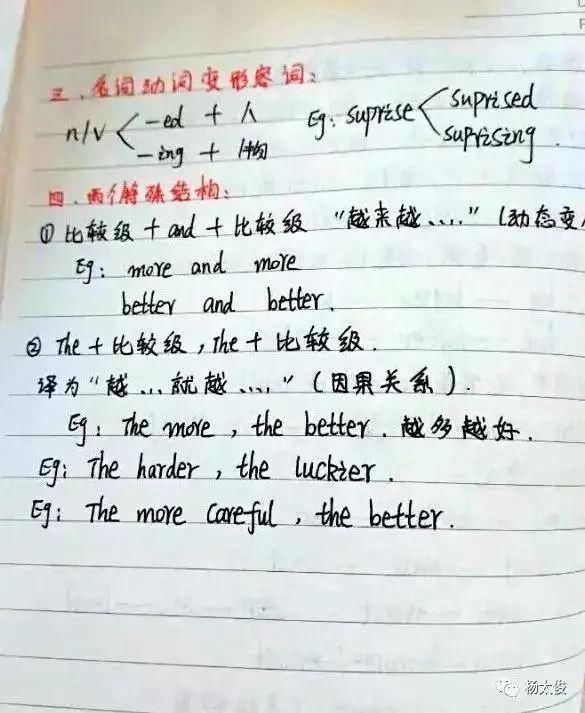 三、名词动词变形容词：
n/v -ed + 人
-ing + 物
Eg: suprise suprised
suprising.
四、两个特殊结构：
① 比较级 + and + 比较级 “越来越....” (动态变
Eg: more and more
better and better.
② The + 比较级, the + 比较级.
译为“越...就越....” (因果关系).
Eg: The more, the better. 越多越好.
Eg: The harder, the luckier.
Eg: The more careful, the better.
杨太俊